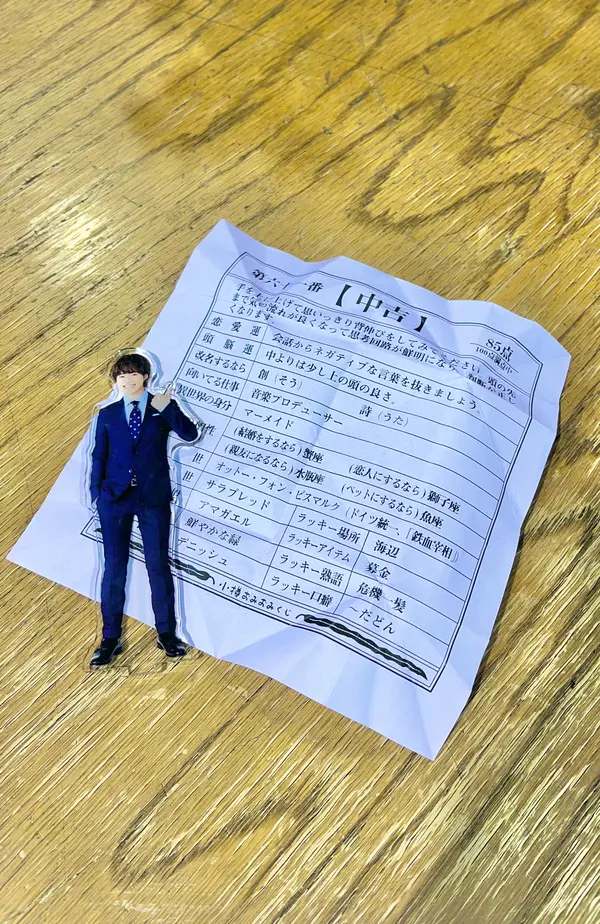 第六十一番
【中吉】
85点
100点満点中
手を上に上げて思いっきり背伸びをしてみてください 頭の先
まで気の流れが良くなって思考回路が鮮明になり
くなります
恋愛運 会話からネガティブな言葉を抜きましょう。
頭脳運 中よりは少し上の頭の良さ。
改名するなら 創(そう) 詩(うた)
向いてる仕事 音楽プロデューサー
異世界の身分 マーメイド
相性 (結婚をするなら)蟹座 (恋人にするなら)獅子座
(親友になるなら)水瓶座 (ペットにするなら)魚座
世 オットー・フォン・ビスマルク(ドイツ統一、「鉄血宰相」)
世 サラブレッド ラッキー場所 海辺
アマガエル ラッキーアイテム 募金
鮮やかな緑 ラッキー熟語 危機一髪
デニッシュ ラッキー口癖 ~だどん
小樽おみおみくじ